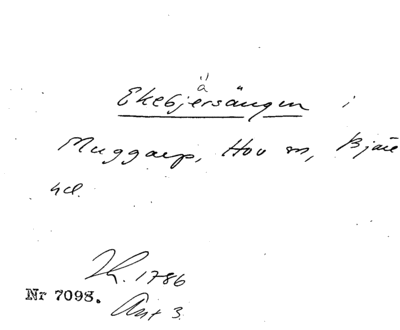 ä
Ekebjersängen i
Muggarp, Hov sn, Bjäre
hd.
Lh. 1786
Nr 7098. Akt 3.